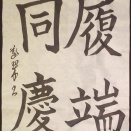 履端
同慶